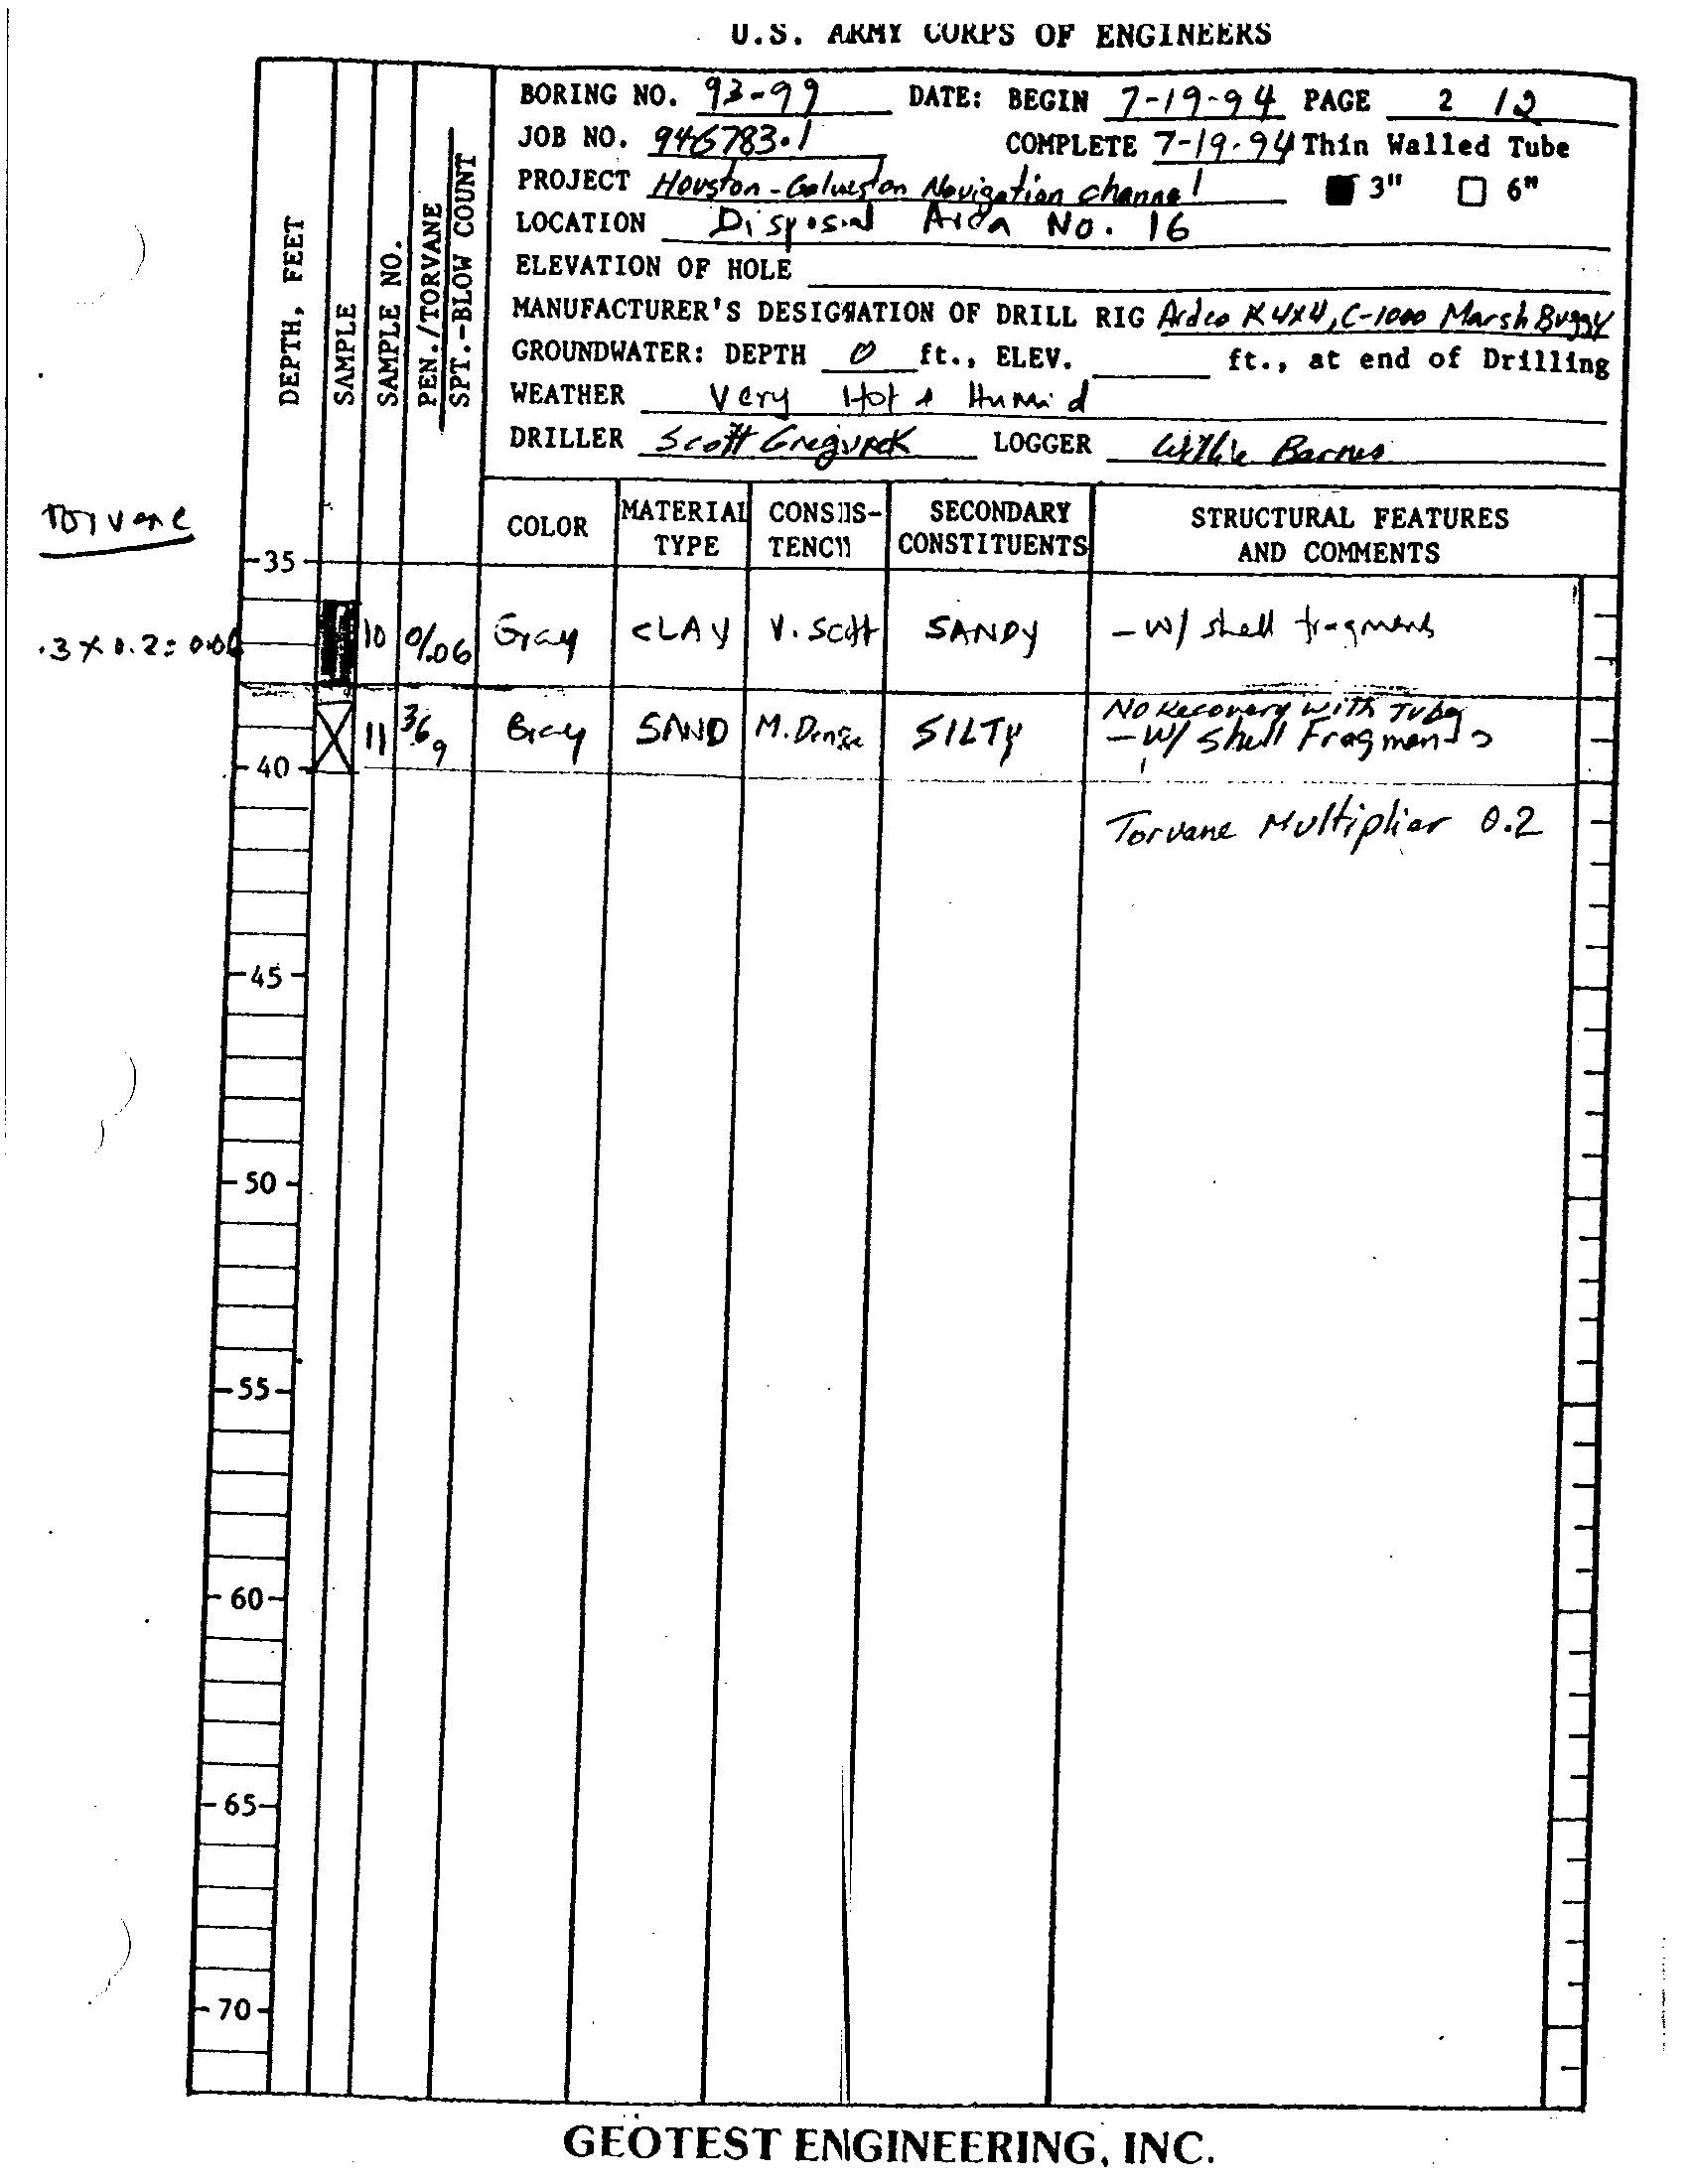 U.S. ARMY CORPS OF ENGINEERS
BORING NO. 93-99 DATE: BEGIN 7-19-94 PAGE 2 / 2
JOB NO. 946783.1 COMPLETE 7-19-94 Thin Walled Tube
PROJECT Houston-Galveston Navigation channel 3" 6"
LOCATION Disposal Area No. 16
ELEVATION OF HOLE
MANUFACTURER'S DESIGNATION OF DRILL RIG Ardco K 4X4, C-1000 Marsh Buggy
GROUNDWATER: DEPTH 0 ft., ELEV. ft., at end of Drilling
WEATHER Very Hot & Humid
DRILLER Scott LOGGER Barnes
DEPTH, FEET
SAMPLE
SAMPLE NO.
PEN./TORVANE
SPT.-BLOW COUNT
COLOR MATERIAL TYPE CONSIS-TENCY SECONDARY CONSTITUENTS STRUCTURAL FEATURES AND COMMENTS
Torvane
35
.3 X 0.2 = 0.06 10 0/.06 Gray CLAY V. Soft SANDY - W/ shell fragments
11 3/6/9 Gray SAND M. Dense SILTY No Recovery with Tube
- W/ Shell Fragments
40
Torvane Multiplier 0.2
45
50
55
60
65
70
GEOTEST ENGINEERING, INC.